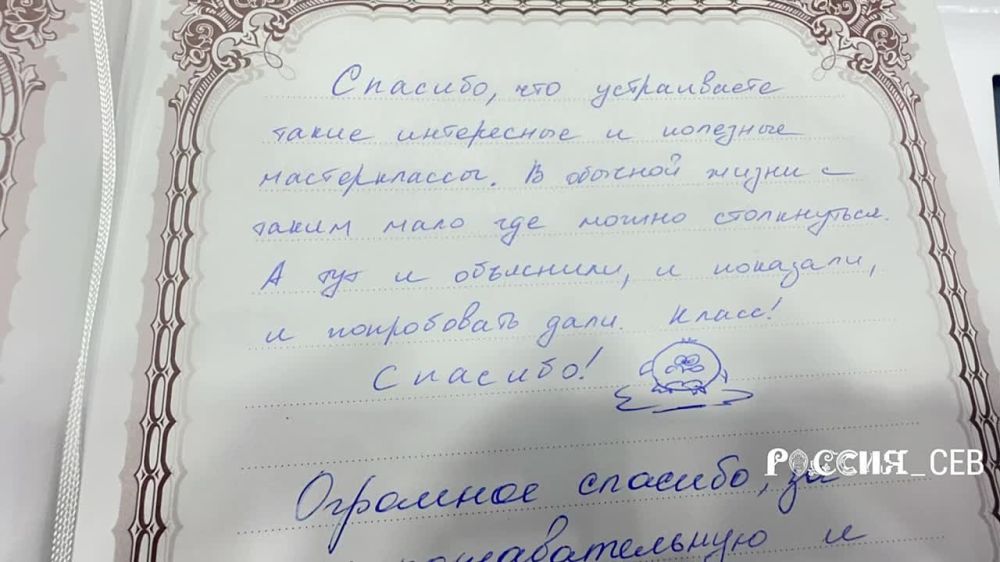 Спасибо, что устраиваете
такие интересные и полезные
мастерклассы. В обычной жизни с
таким мало где можно столкнуться.
А тут и объяснили, и показали,
и попробовать дали. Класс!
Спасибо!
РОССИЯ_СЕВ
Огромное спасибо, за
познавательную и